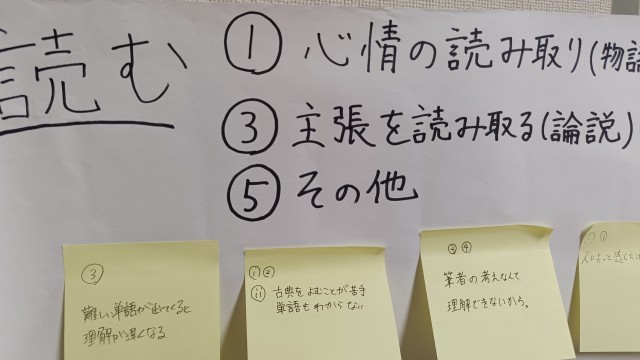 読む
① 心情の読み取り(物語
③ 主張を読み取る(論説)
⑤ その他
③
難しい単語が出てくると
理解が遅くなる
① ②
ii 古典をよむことが苦手
単語もわからない
③ ④
筆者の考えなんて
理解できないかも。
人によって感じ方は